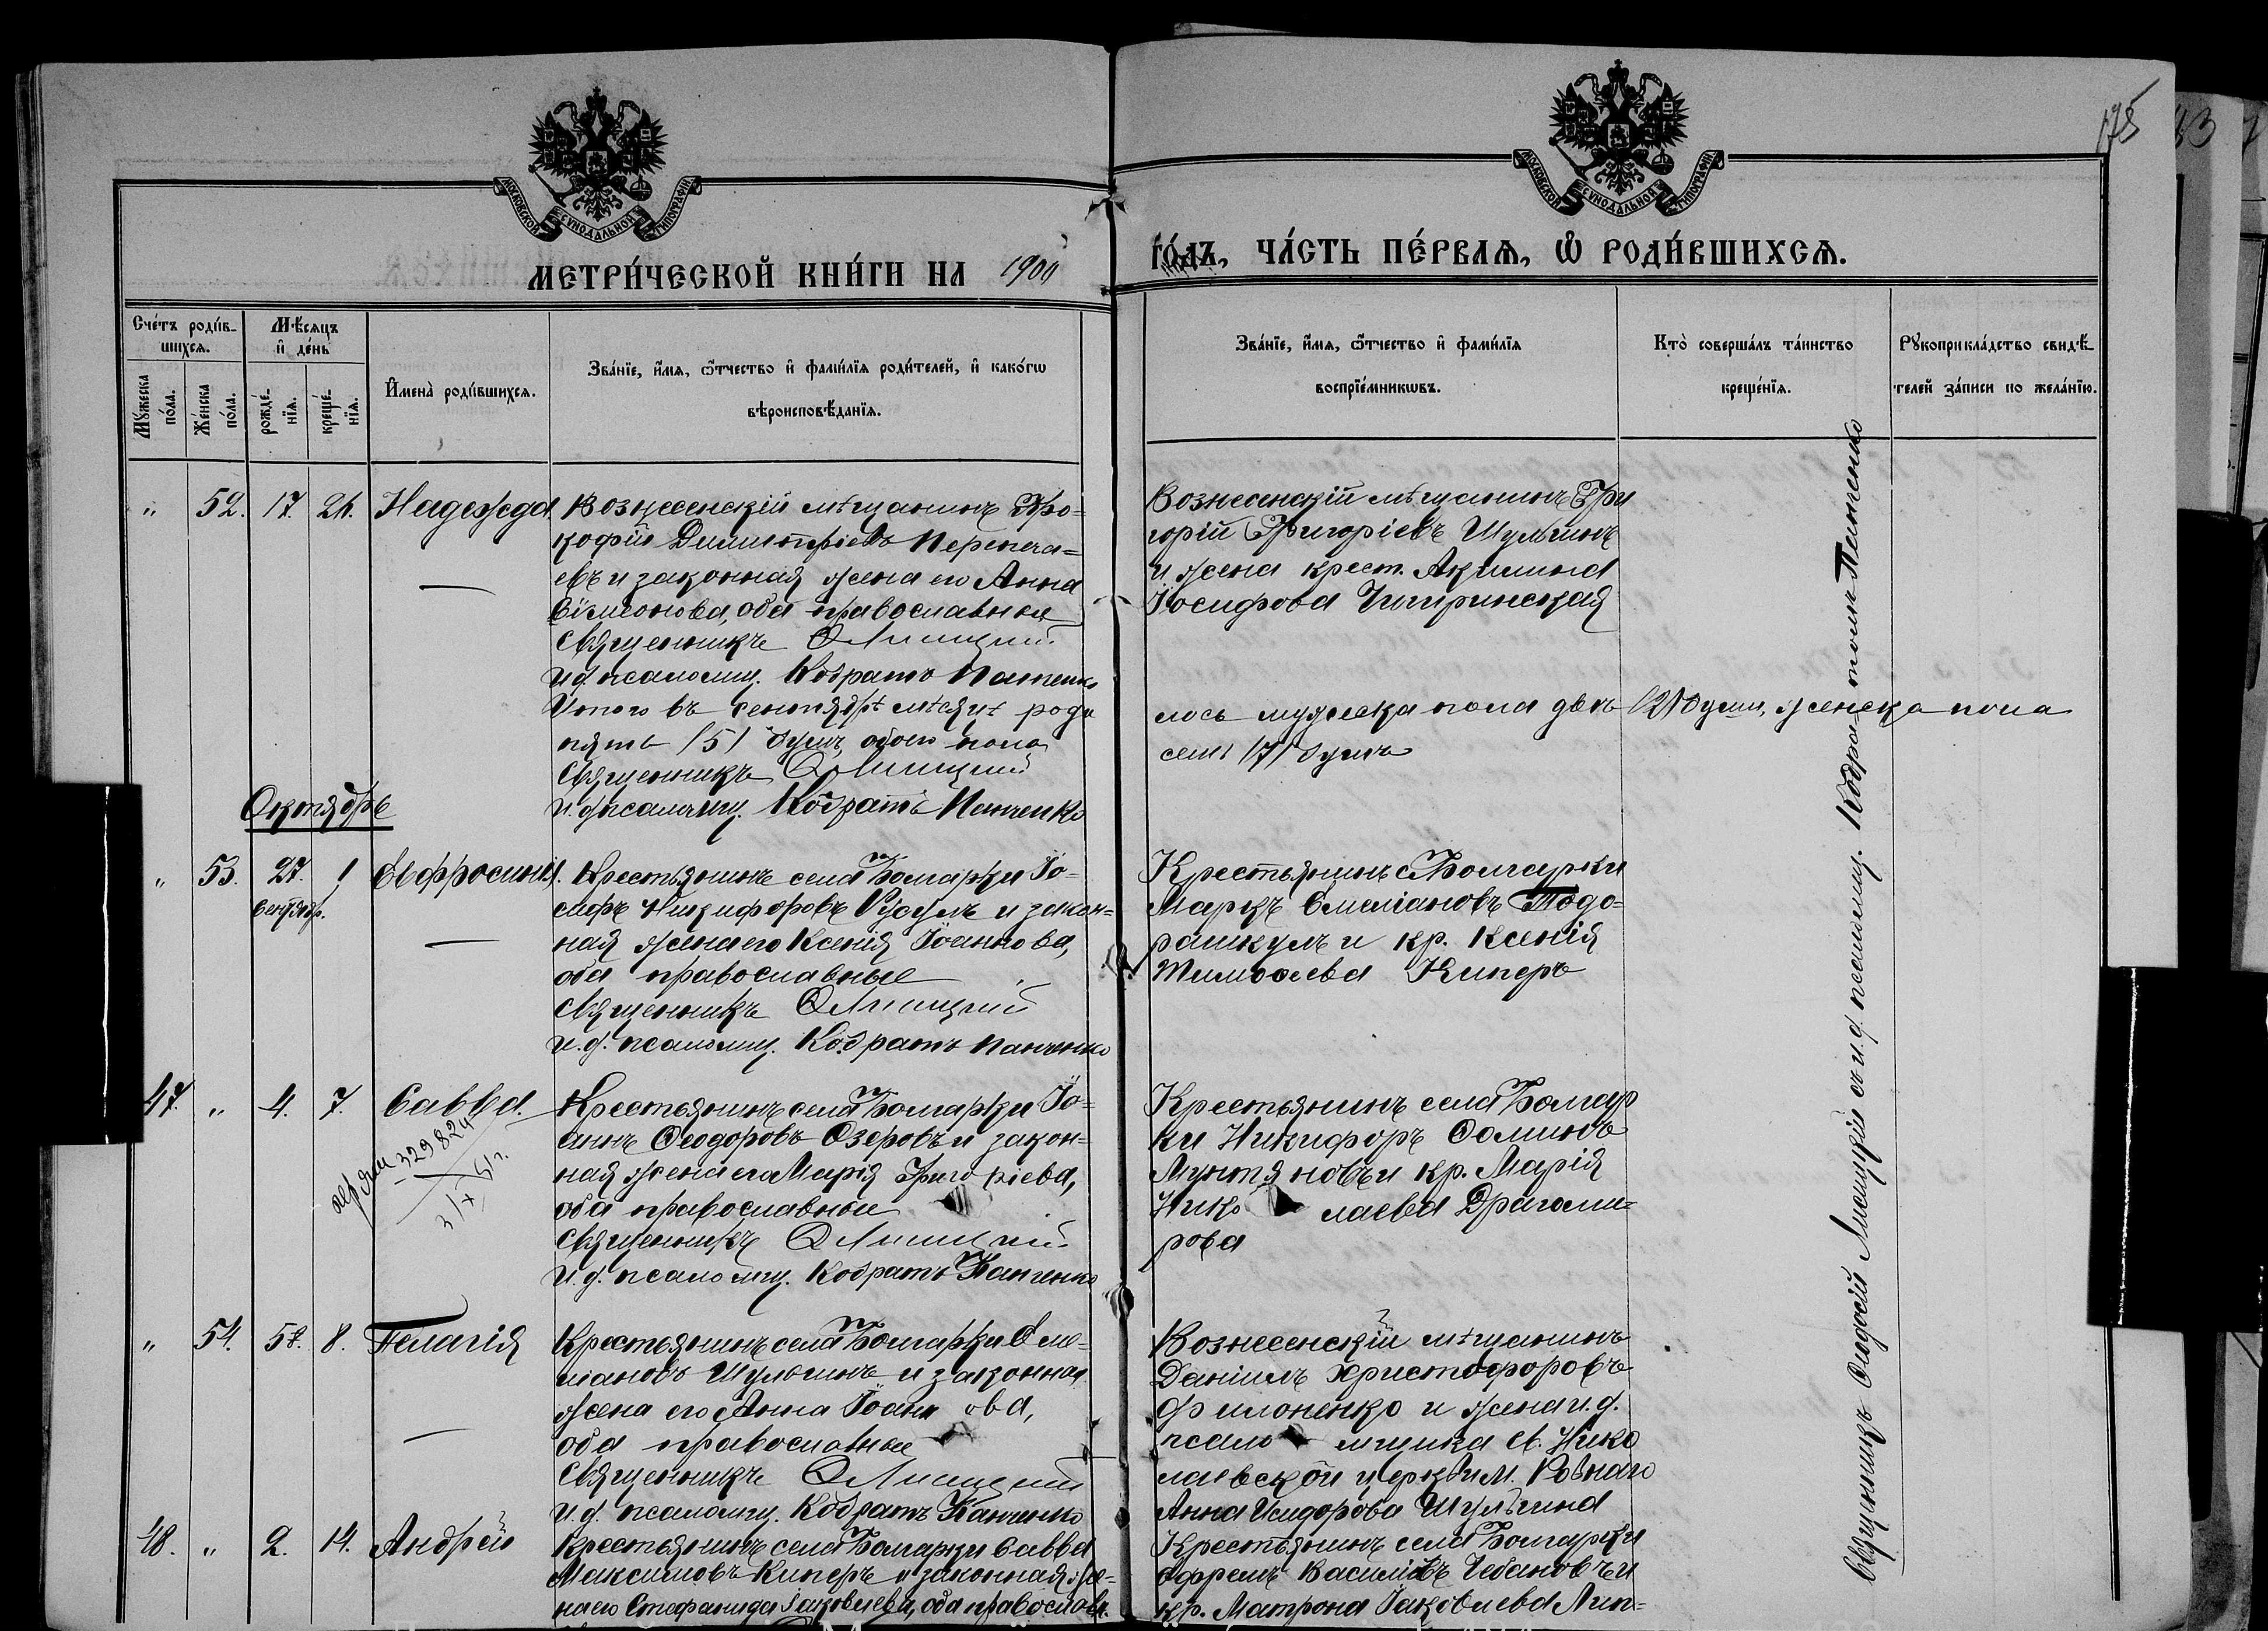 175
МОСКОВСКОЙ СѴНОДАЛЬНОЙ ТИПОГРАФІИ
МОСКОВСКОЙ СѴНОДАЛЬНОЙ ТИПОГРАФІИ
МЕТРИ́ЧЕСКОЙ КНИ́ГИ НА 1901
ГО́ДЪ, ЧА́СТЬ ПЕ́РВАѦ, Ѽ РОДИ́ВШИХСѦ.
Сче́тъ роди́вшихсѧ.
Мꙋ́жеска по́ла.
Же́нска по́ла.
Мѣ́сѧцъ и҆ де́нь
рожде́нїѧ.
креще́нїѧ.
И҆мена̀ роди́вшихсѧ.
Зва́нїе, и҆́мѧ, ѻ҆́тчество и҆ фами́лїѧ роди́телей, и҆ како́гѡ
вѣроисповѣ́данїѧ.
Зва́нїе, и҆́мѧ, ѻ҆́тчество и҆ фами́лїѧ
воспрїе́мникѡвъ.
Кто̀ соверша́лъ та́инство
креще́нїѧ.
Рꙋкоприкла́дство свидѣ́-
телей за́писи по жела́нїю.
" 52. 17. 21. Надежда
Вознесенскій мѣщанинъ Про-
кофій Димитріевъ
евъ и законная жена его Анна
Сѵмеонова, оба православные
Священникъ Ѳ Лисицкій
и д псаломщ. Кодратъ Панченко
Итого въ сентябрѣ мѣсяцѣ роди
пять /5/ душъ обоего пола
Священникъ Ѳ Лисицкій
и. д псаломщ. Кодратъ Панченко
Вознесенскій мѣщанинъ Гри
горій Григоріевъ Шульгинъ
и жена крест. Акилина
Іосифова Чигиринская
лось мужеска пола двѣ /2/ души, женска пола
семь /7/ душъ
Октябрь
" 53. 27. Сентябр. 1 Евфросинія.
Крестьянинъ села Болгарки Іо-
сифъ Никифоровъ Русулъ и закон-
ная жена его Ксенія Іоаннова,
оба православные
Священникъ Ѳ Лисицкій
и. д. псаломщ. Кодратъ Панченко
Крестьянинъ с Болгарки
Маркъ Емеліановъ Тодо-
рашкулъ и кр. Ксенія
Тимоѳеева Киперъ
47. " 4. 7. Савва.
329824
Крестьянинъ села Болгарки Іо-
аннъ Ѳеодоровъ Озеровъ и закон-
ная жена его Марія Григоріева,
оба православные
Священникъ Ѳ Лисицкій
и. д. псаломщ. Кодратъ Панченко
Крестьянинъ села Болгар
ки Никифоръ Ѳоминъ
Мунтяновъ и кр. Марія
Николаева Драгоми-
рова
" 54. 5. 8. Пелагія
Крестьянинъ села Болгарки Еме-
ліановъ Шульгинъ и законная
жена его Анна Іоаннова,
оба православные
Священникъ Ѳ Лисицкій
и. д. псаломщ. Кодратъ Панченко
Вознесенскій мѣщанинъ
Даніилъ Христофоровъ
Филоненко и жена и. д.
псаломщика Св. Нико
лаевской церкви м. Ровнаго
Анна Исидорова Шульгина
48. " 2. 14. Андрей
Крестьянинъ села Болгарки Савва
Максимовъ Киперъ и законная же-
на его Стефанида Іаковлева, оба православн.
Крестьянинъ села Болгарки
Ефремъ Василіевъ Чебановъ и
кр. Матрона Іаковлева Лип-
Священникъ Ѳеодосій Лисицкій съ и. д. псаломщ. Кодратомъ Панченко